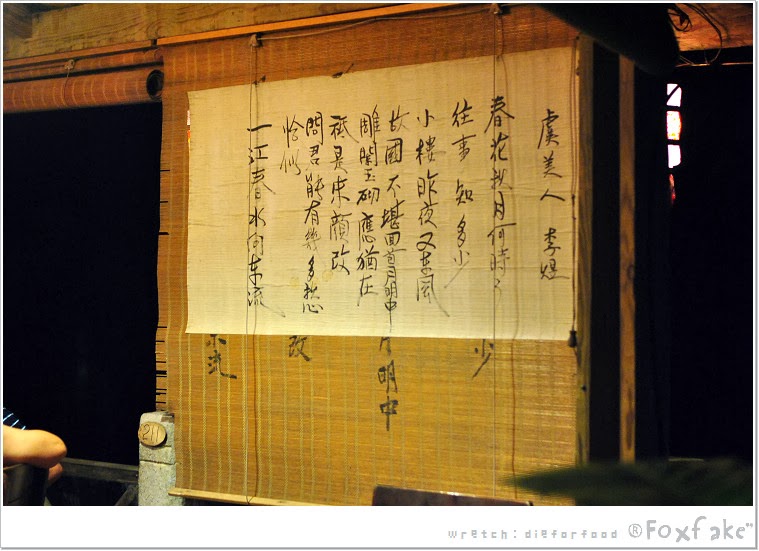 虞美人 李煜
春花秋月何時了
往事知多少
小樓昨夜又東風
故國不堪回首月明中
雕闌玉砌應猶在
祗是朱顏改
問君能有幾多愁
恰似
一江春水向東流
少
月明中
改
東流
211
wretch:dieforfood ®Foxfake™